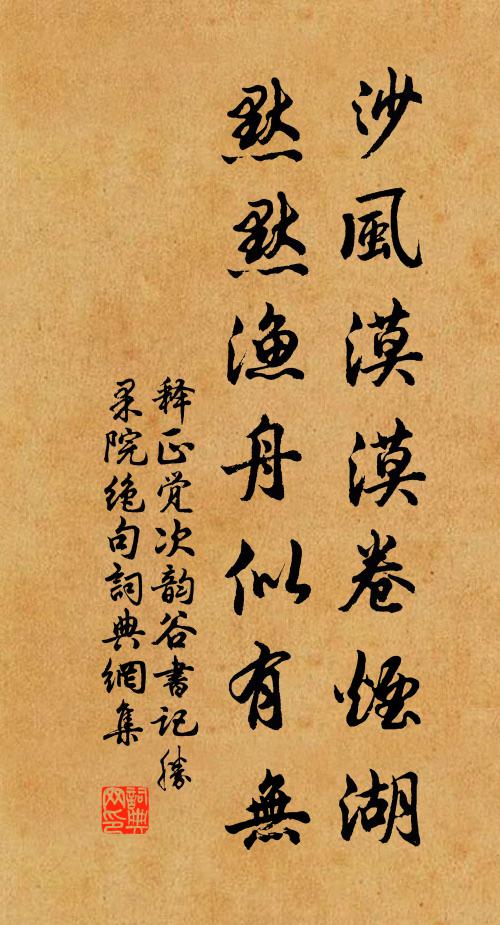 沙風漠漠卷煙湖
黙黙漁舟似有無
释正觉次韵谷書记勝
果院绝句詞典網集
詞典
网印